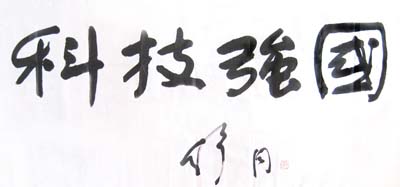 科技強國